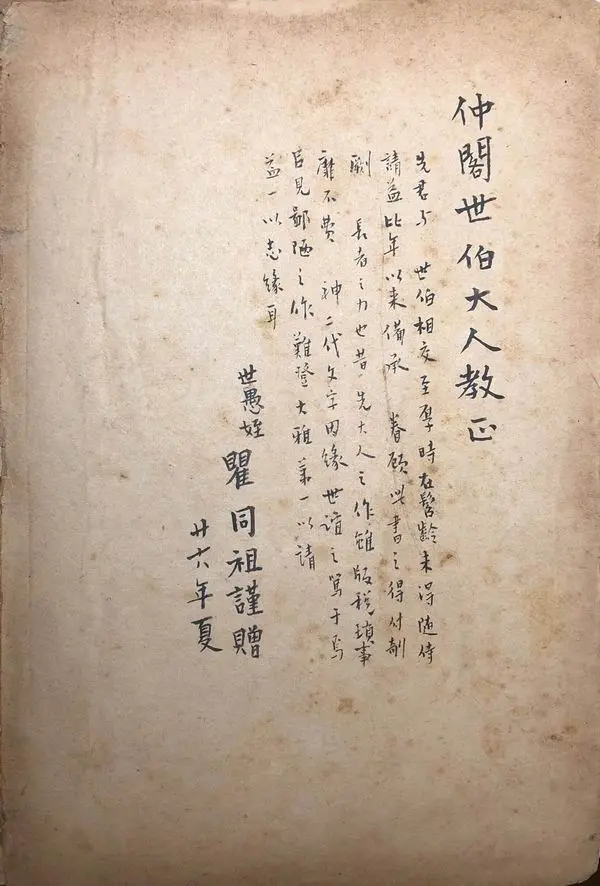 仲閣世伯大人教正
先君与 世伯相交至厚時在髫齡未得随侍
請益比年以来備承 眷顧此書之得付剞
劂 長者之力也昔 先大人之作雖版稅瑣事
靡不費 神二代文字因緣世誼之篤于焉
百見鄙陋之作難登大雅第一以請
益一以志緣耳
世愚姪瞿同祖謹贈
廿六年夏